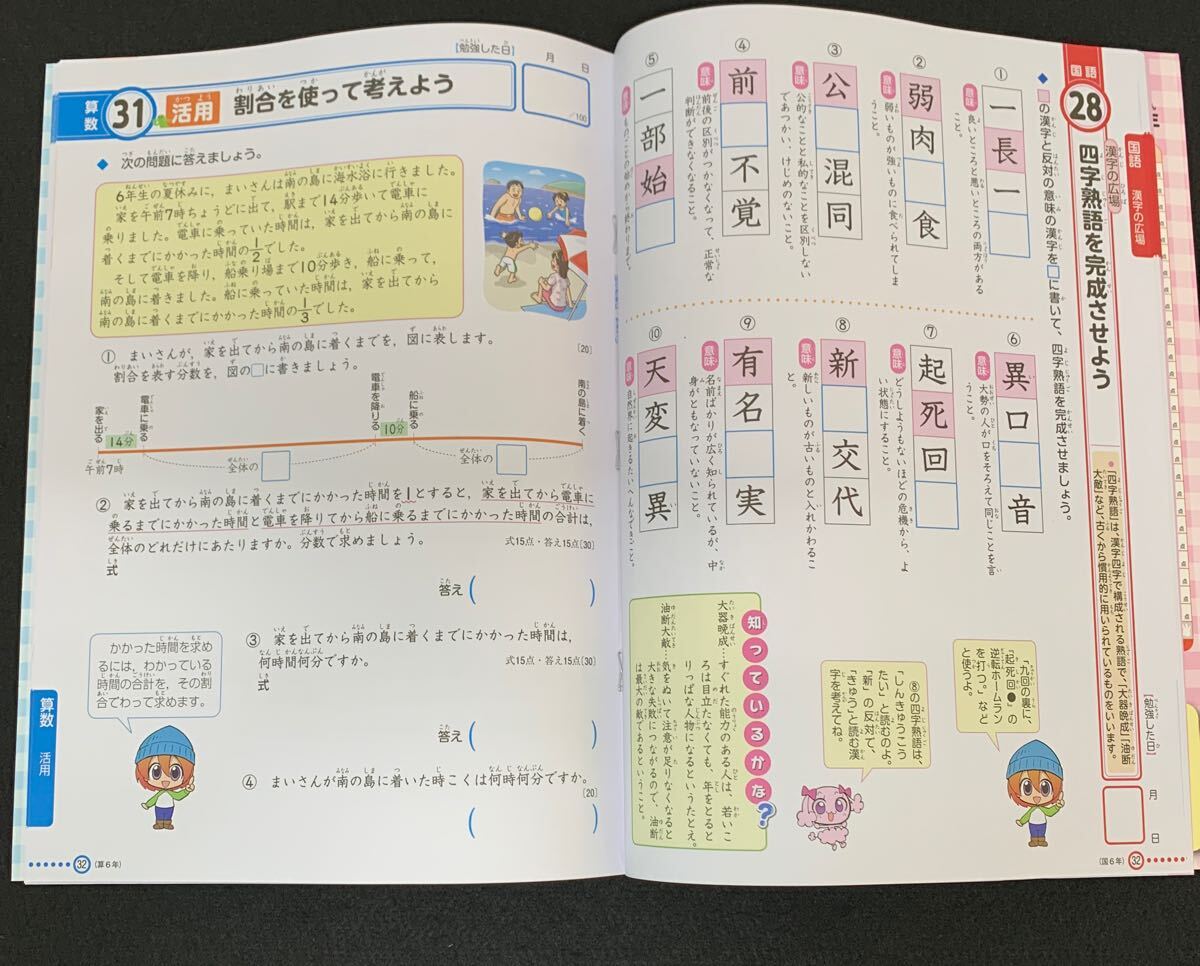 算数
31
活用
割合を使って考えよう
[勉強した日]
月 日
/100
◆ 次の問題に答えましょう。
6年生の夏休みに，まいさんは南の島に海水浴に行きました。
家を午前7時ちょうどに出て，駅まで14分歩いて電車に
乗りました。電車に乗っていた時間は，家を出てから南の島に
着くまでにかかった時間の1/2でした。
そして電車を降り，船乗り場まで10分歩き，船に乗って，
南の島に着きました。船に乗っていた時間は，家を出てから
南の島に着くまでにかかった時間の1/3でした。
① まいさんが，家を出てから南の島に着くまでを，図に表します。
割合を表す分数を，図の□に書きましょう。
[20]
家を出る
電車に乗る
電車を降りる
船に乗る
南の島に着く
14分
10分
午前7時
全体の□
全体の□
② 家を出てから南の島に着くまでにかかった時間を1とすると，家を出てから電車に
乗るまでにかかった時間と電車を降りてから船に乗るまでにかかった時間の合計は，
全体のどれだけにあたりますか。分数で求めましょう。
式15点・答え15点[30]
式
答え( )
③ 家を出てから南の島に着くまでにかかった時間は，
何時間何分ですか。
式15点・答え15点[30]
式
答え( )
④ まいさんが南の島に着いた時こくは何時何分ですか。
[20]
( )
かかった時間を求め
るには，わかっている
時間の合計を，その割
合でわって求めます。
算数 活用
32
(算6年)
国語
28
漢字の広場
四字熟語を完成させよう
国語 漢字の広場
●「四字熟語」は、漢字四字で構成される熟語で、「大器晩成」「油断
大敵」など、古くから慣用的に用いられているものをいいます。
[勉強した日]
月 日
◆■の漢字と反対の意味の漢字を□に書いて、四字熟語を完成させましょう。
① 一長一□
意味 良いところと悪いところの両方がある
こと。
② 弱肉□食
意味 弱いものが強いものに食べられてしま
うこと。
③ 公□混同
意味 公的なことと私的なことを区別しない
であつかい、けじめのないこと。
④ 前□不覚
意味 前後の区別がつかなくなって、正常な
判断ができなくなること。
⑤ 一部始□
意味 ものごとの始めから終わりまで。
⑥ 異口□音
意味 大勢の人が口をそろえて同じことを言
うこと。
⑦ 起死回□
意味 どうしようもないほどの危機から、よ
い状態にすること。
⑧ 新□交代
意味 新しいものが古いものと入れかわるこ
と。
⑨ 有名□実
意味 名前ばかりが広く知られているが、中
身がともなっていないこと。
⑩ 天変□異
意味 自然界に起きるたいへんなできごと。
「九回の裏に、
『起死回●』の
逆転ホームラン
を打つ。」など
と使うよ。
⑧の四字熟語は、
「しんきゅうこう
たい」と読むのよ。
「新」の反対で、
「きゅう」と読む漢
字を考えてね。
知っているかな?
大器晩成…すぐれた能力のある人は、若いこ
ろは目立たなくても、年をとると
りっぱな人物になるというたとえ。
油断大敵…気をぬいて注意が足りなくなると
大きな失敗につながるので、油断
は最大の敵であるということ。
(国6年)
32